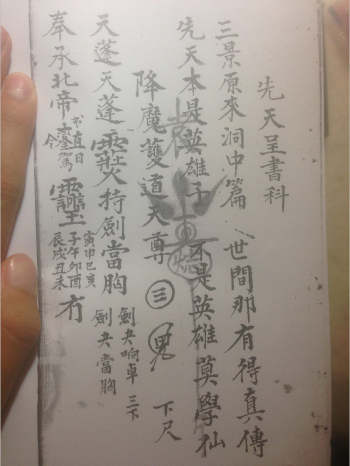 先天呈書科
三景原來洞中篇 世間那有得真傳
先天本是英雄子 不是英雄莫學仙
降魔護道天尊 三 下尺
天蓬天蓬 持劍當胸 劍夬响卓三下 劍夬當胸
奉承北帝 書直日 寅申巳亥 子午卯酉 辰戌丑未 有